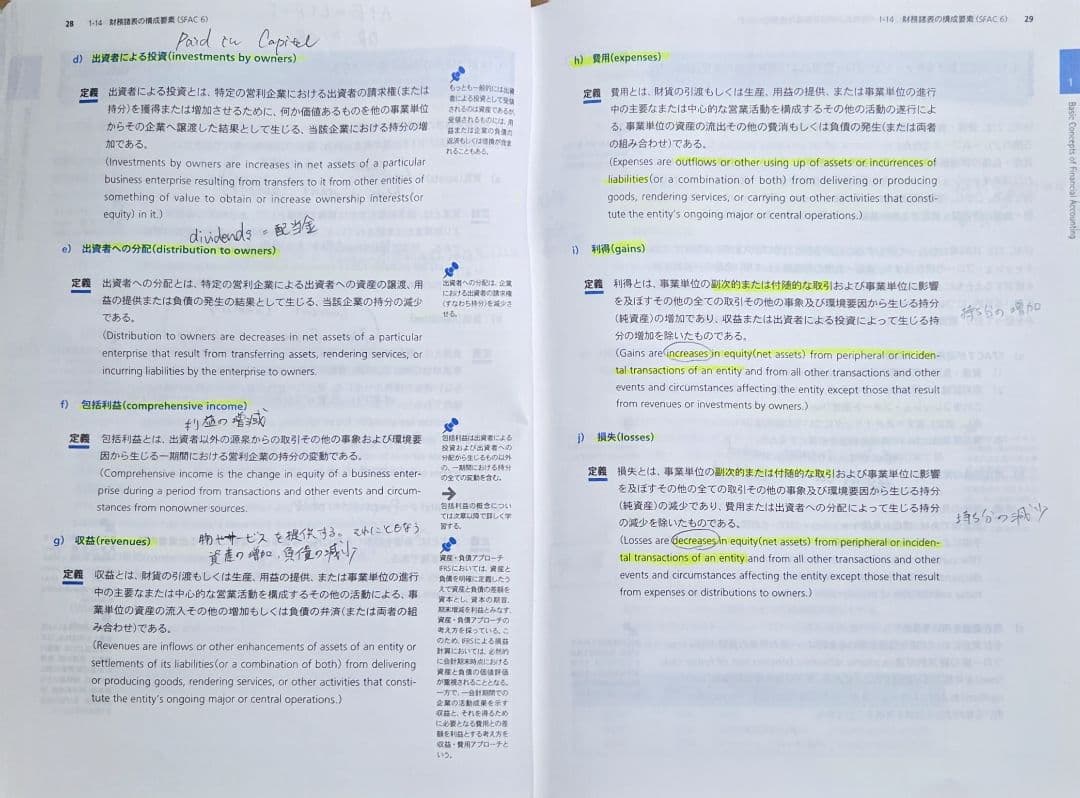 28 1-14 財務諸表の構成要素(SFAC 6)
Paid in Capital
d) 出資者による投資(investments by owners)
定義 出資者による投資とは、特定の営利企業における出資者の請求権(または
持分)を獲得または増加させるために、何か価値あるものを他の事業単位
からその企業へ譲渡した結果として生じる、当該企業における持分の増
加である。
(Investments by owners are increases in net assets of a particular
business enterprise resulting from transfers to it from other entities of
something of value to obtain or increase ownership interests(or
equity) in it.)
もっとも一般的には出資
者による投資として受領
されるのは資産であるが、
受領されるものには、用
益または企業の負債の
返済もしくは転換が含ま
れることもある。
dividends = 配当金
e) 出資者への分配(distribution to owners)
定義 出資者への分配とは、特定の営利企業による出資者への資産の譲渡、用
益の提供または負債の発生の結果として生じる、当該企業の持分の減少
である。
(Distribution to owners are decreases in net assets of a particular
enterprise that result from transferring assets, rendering services, or
incurring liabilities by the enterprise to owners.
出資者への分配は、企業
における出資者の請求権
(すなわち持分)を減少さ
せる。
f) 包括利益(comprehensive income)
利益の増減
定義 包括利益とは、出資者以外の源泉からの取引その他の事象および環境要
因から生じる一期間における営利企業の持分の変動である。
(Comprehensive income is the change in equity of a business enter-
prise during a period from transactions and other events and circum-
stances from nonowner sources.
包括利益は出資者による
投資および出資者への
分配から生じるもの以外
の、一期間における持分
の全ての変動を含む。
→
包括利益の概念につい
ては次章以降で詳しく学
習する。
物やサービスを提供する。それにともなう
g) 収益(revenues)
資産の増加、負債の減少
定義 収益とは、財貨の引渡もしくは生産、用益の提供、または事業単位の進行
中の主要なまたは中心的な営業活動を構成するその他の活動による、事
業単位の資産の流入その他の増加もしくは負債の弁済(または両者の組
み合わせ)である。
(Revenues are inflows or other enhancements of assets of an entity or
settlements of its liabilities(or a combination of both) from delivering
or producing goods, rendering services, or other activities that consti-
tute the entity's ongoing major or central operations.)
資産・負債アプローチ
IFRSにおいては、資産と
負債を明確に定義したう
えで資産と負債の差額を
資本とし、資本の期首、
期末増減を利益とみなす、
資産・負債アプローチの
考え方を採っている。こ
のため、IFRSによる損益
計算においては、必然的
に会計期末時点における
資産と負債の価値評価
が重視されることとなる。
一方で、一会計期間での
企業の活動成果を示す
収益と、それを得るため
に必要となる費用との差
額を利益とする考え方を
収益・費用アプローチと
いう。
1-14 財務諸表の構成要素(SFAC 6) 29
1
Basic Concepts of Financial Accounting
h) 費用(expenses)
定義 費用とは、財貨の引渡もしくは生産、用益の提供、または事業単位の進行
中の主要なまたは中心的な営業活動を構成するその他の活動の遂行によ
る、事業単位の資産の流出その他の費消もしくは負債の発生(または両者
の組み合わせ)である。
(Expenses are outflows or other using up of assets or incurrences of
liabilities(or a combination of both) from delivering or producing
goods, rendering services, or carrying out other activities that consti-
tute the entity's ongoing major or central operations.)
i) 利得(gains)
定義 利得とは、事業単位の副次的または付随的な取引および事業単位に影響
を及ぼすその他の全ての取引その他の事象及び環境要因から生じる持分
(純資産)の増加であり、収益または出資者による投資によって生じる持
分の増加を除いたものである。
(Gains are increases in equity(net assets) from peripheral or inciden-
tal transactions of an entity and from all other transactions and other
events and circumstances affecting the entity except those that result
from revenues or investments by owners.)
持ち分の増加
j) 損失(losses)
定義 損失とは、事業単位の副次的または付随的な取引および事業単位に影響
を及ぼすその他の全ての取引その他の事象及び環境要因から生じる持分
(純資産)の減少であり、費用または出資者への分配によって生じる持分
の減少を除いたものである。
(Losses are decreases in equity(net assets) from peripheral or inciden-
tal transactions of an entity and from all other transactions and other
events and circumstances affecting the entity except those that result
from expenses or distributions to owners.)
持ち分の減少